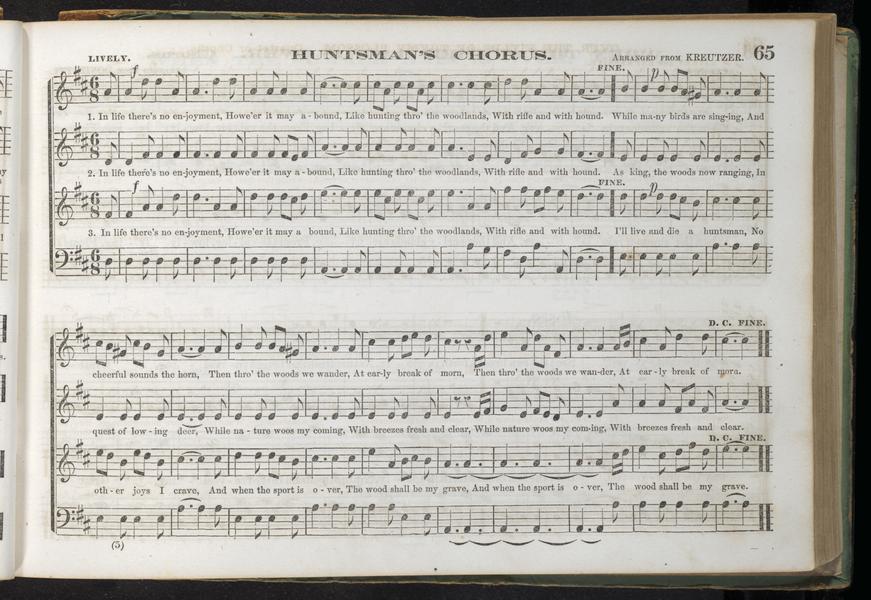 LIVELY. HUNTSMAN'S CHORUS. ARRANGED FROM KREUTZER. 65
f FINE. p
1. In life there's no en-joyment, Howe'er it may a-bound, Like hunting thro' the woodlands, With rifle and with hound. While ma-ny birds are sing-ing, And
2. In life there's no en-joyment, Howe'er it may a-bound, Like hunting thro' the woodlands, With rifle and with hound. As king, the woods now ranging, In
f FINE. p
3. In life there's no en-joyment, Howe'er it may a bound, Like hunting thro' the woodlands, With rifle and with hound. I'll live and die a huntsman, No
D. C. FINE.
cheerful sounds the horn, Then thro' the woods we wander, At ear-ly break of morn, Then thro' the woods we wan-der, At ear-ly break of morn.
quest of low-ing deer, While na-ture woos my coming, With breezes fresh and clear, While nature woos my com-ing, With breezes fresh and clear.
D. C. FINE.
oth-er joys I crave, And when the sport is o-ver, The wood shall be my grave, And when the sport is o-ver, The wood shall be my grave.
(5)